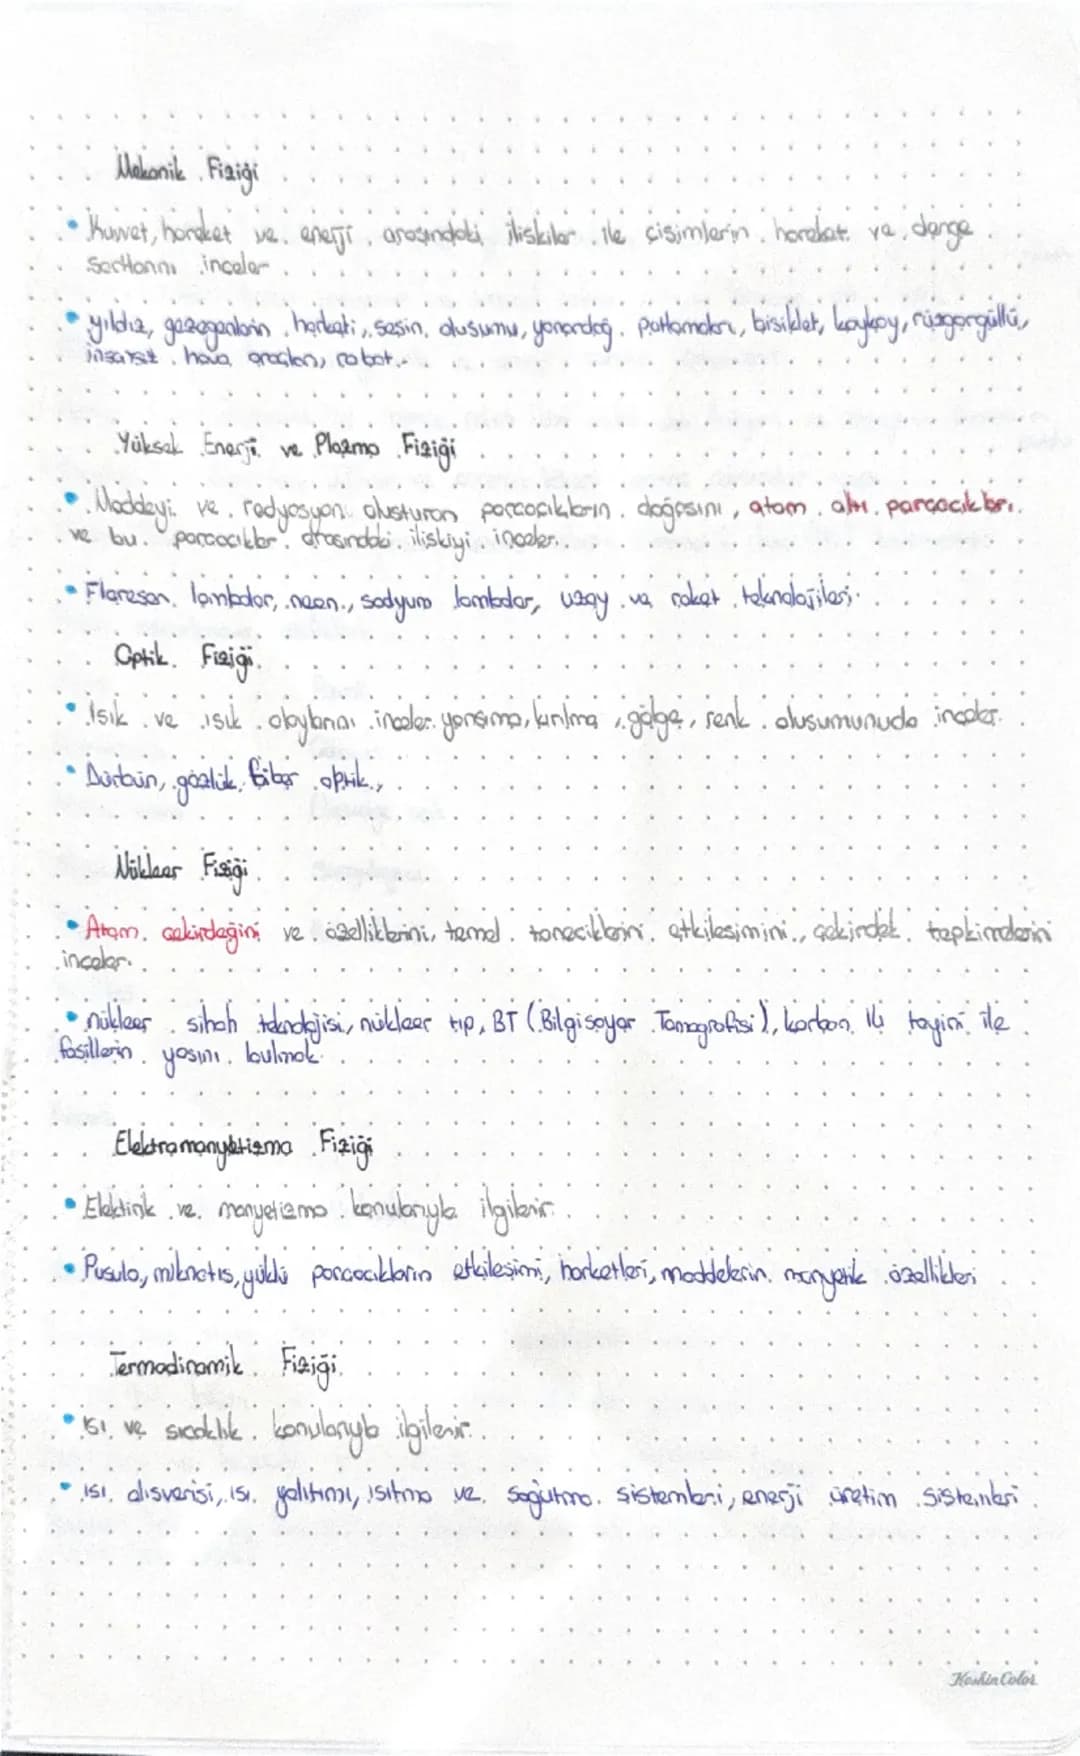 Mekanik Fiziği
• Kuvvet, hareket ve enerji arasındaki iliskiler ile cisimlerin hareket ve denge
Sartlarını inceler
• yıldız, gezegenlerin harketi, sesin olusumu, yanardağ patlamaları, bisiklet, kaykay, rüzgargüllü,
insansız hava araçları, robot..
Yüksek Enerji ve Plazma Fiziği
• Maddeyi ve radyasyon olusturan parcacıkların doğasını, atom altı parcacıkları
ve bu parcacıklar arasındaki iliskiyi inceler.
• Floresan lambalar, neon, sodyum lambalar, uzay ve roket teknolojileri.
Optik Fiziği
• Isık ve ısık olaylarını inceler. yansıma, kırılma, gölge, renk olusumunuda inceler.
• Dürbün, gözlük, fiber optik,
Nükleer Fiziği
• Atom cekirdeğini ve özelliklerini, temel taneciklerini etkilesimini, cekirdek tepkimelerini
inceler.
• nükleer silah teknolojisi, nükleer tıp, BT (Bilgisayar Tomografisi), karbon 14 tayini ile
fosillerin yasını bulmak
Elektromanyetizma Fiziği
• Elektirik ve manyetizma konularıyla ilgilenir.
• Pusula, mıknatıs, yüklü parcacıkların etkilesimi, harketleri, maddelerin manyetik özellikleri
Termodinamik Fiziği
• ısı ve sıcaklık konularıyla ilgilenir.
• ısı alısverisi, ısı yalıtımı, ısıtma ve soğutma sistemleri, enerji üretim sistemleri
Keskin Color